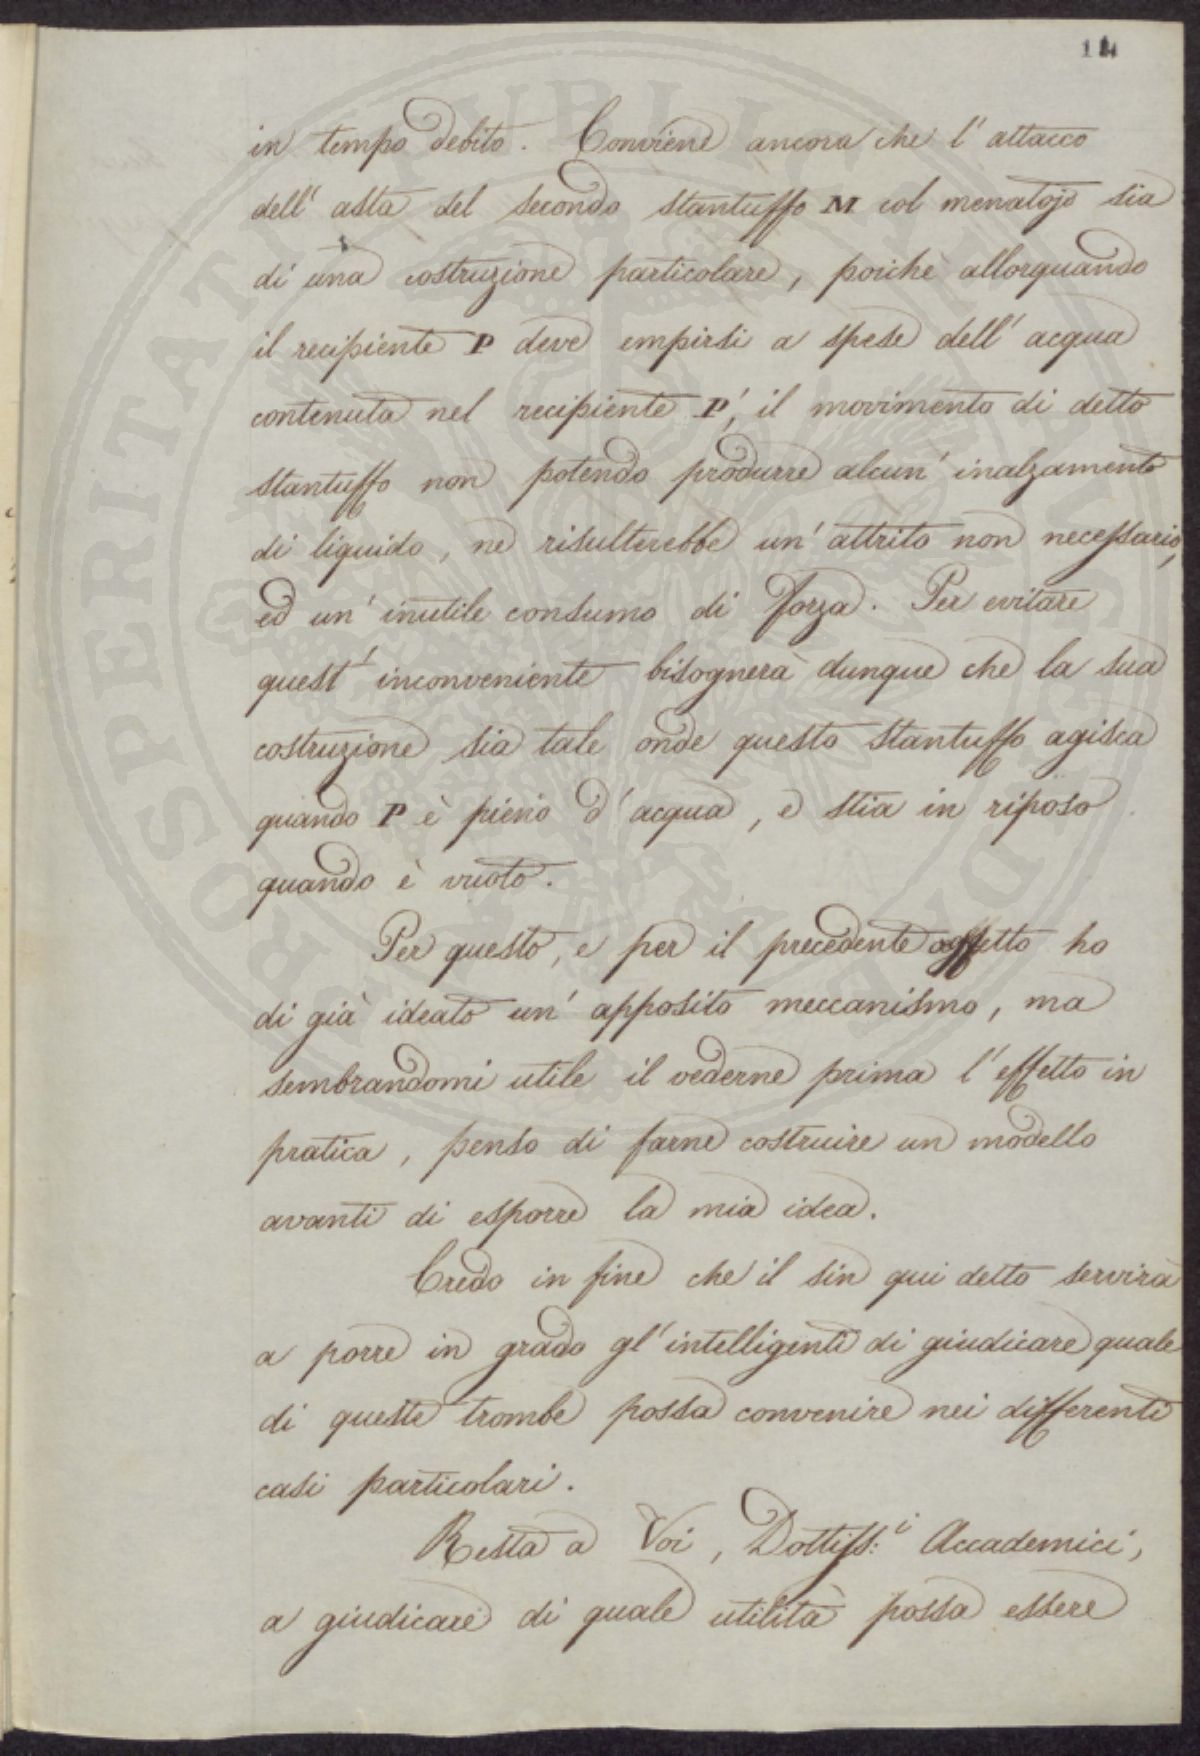 in tempo debito. Conviene ancora che l'attacco
dell'asta del secondo stantuffo M col menatojo sia
di una costruzione particolare, poichè allorquando
il recipiente P deve empirsi a spese dell'acqua
contenuta nel recipiente P', il movimento di detto
stantuffo non potendo produrre alcun'inalzamento
di liquido, ne risulterebbe un'attrito non necessario,
ed un'inutile consumo di forza. Per evitare
quest'inconveniente bisognerà dunque che la sua
costruzione sia tale onde questo stantuffo agisca
quando P è pieno d'acqua, e stia in riposo
quando è vuoto.
Per questo, e per il precedente oggetto ho
di già ideato un'apposito meccanismo, ma
sembrandomi utile il vederne prima l'effetto in
pratica, penso di farne costruire un modello
avanti di esporre la mia idea.
Credo in fine che il sin qui detto servirà
a porre in grado gl'intelligenti di giudicare quale
di queste trombe possa convenire nei differenti
casi particolari.
Resta a Voi, Dottiss:i Accademici,
a giudicare di quale utilità possa essere
PROSPERITATI PVBLICAE